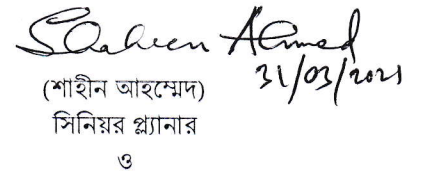 Shaheen Ahmed
31/03/2021
(শাহীন আহম্মেদ)
সিনিয়র প্ল্যানার
ও